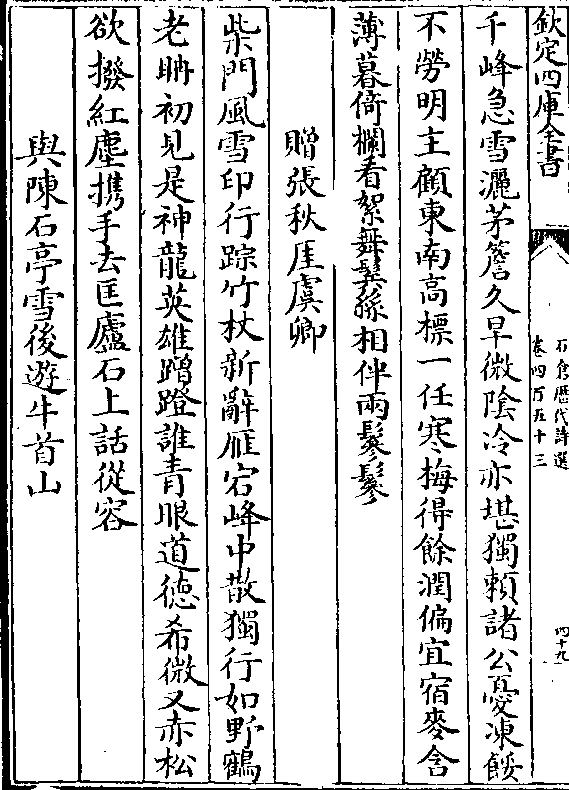 欽定四庫全書
石倉歷代詩選
卷四百五十三
四十九
千峰急雪灑茅簷久旱微陰冷亦堪獨賴諸公憂凍餒
不勞明主顧東南高標一任寒梅得餘潤偏宜宿麥含
薄暮倚欄看絮舞鬓絲相伴兩鬖鬖
贈張秋厓虞卿
柴門風雪印行踪竹杖新辭雁宕峰中散獨行如野鶴
老聃初見是神龍英雄蹭蹬誰青眼道德希微又赤松
欲撥紅塵携手去匡廬石上話從容
與陳石亭雪後遊牛首山